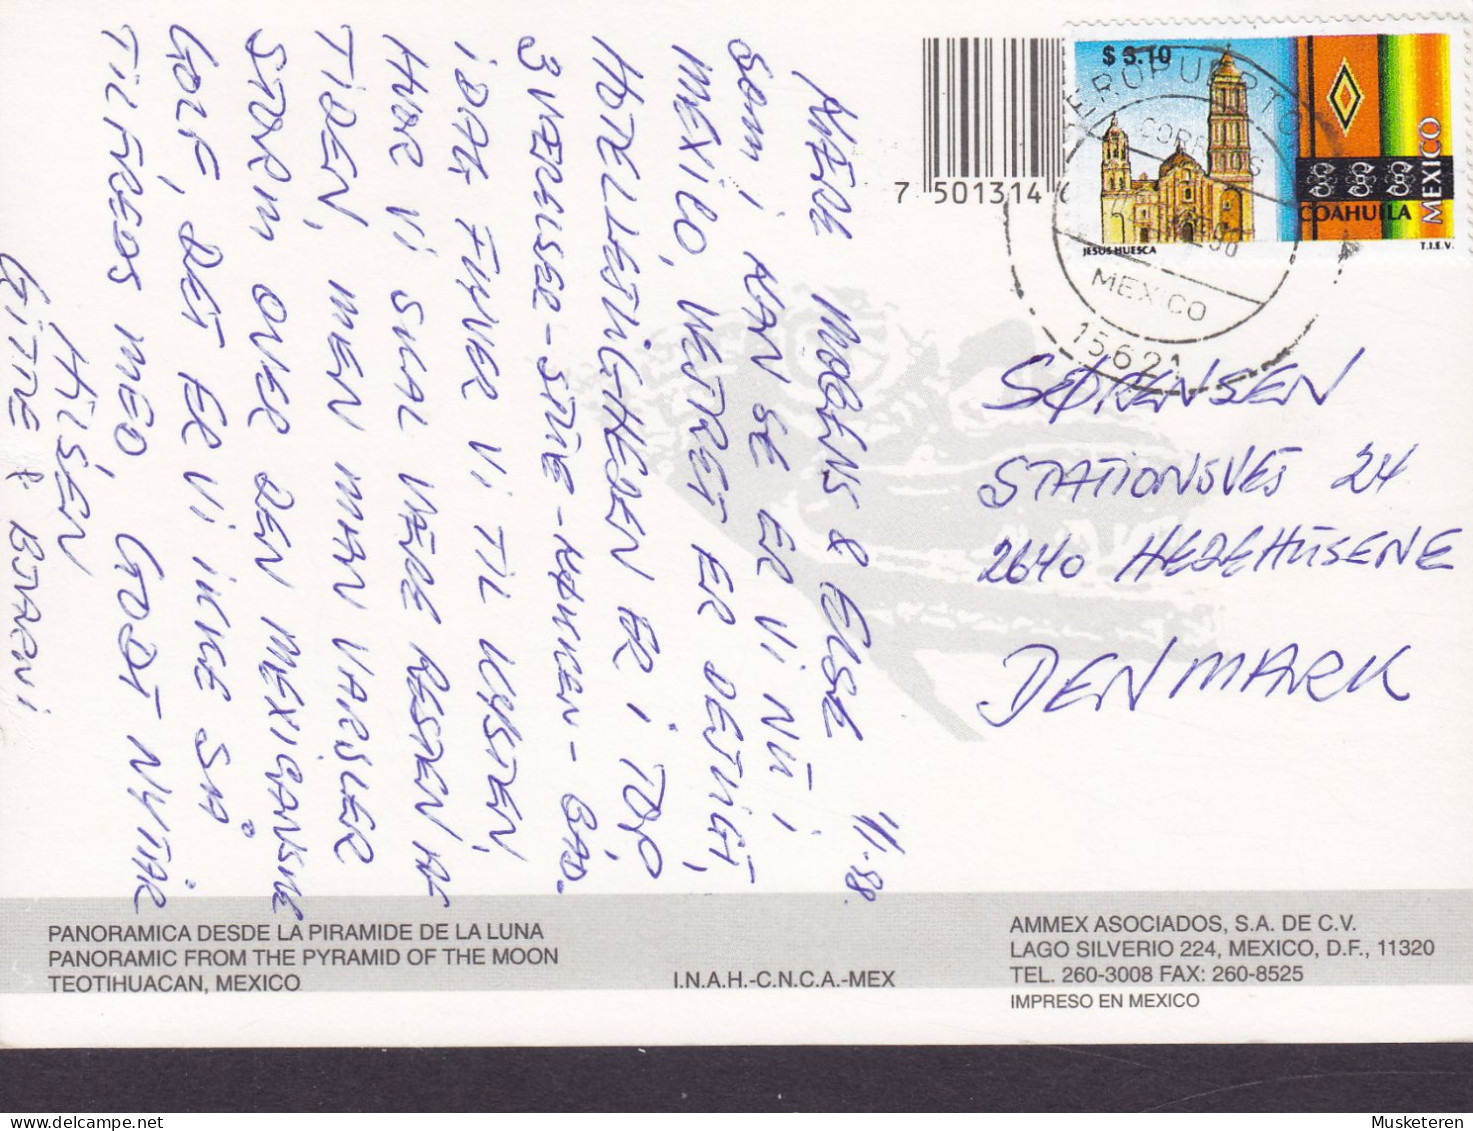 KÆRE MOGENS & ELSE 1/1-98.
SOM I KAN SE ER VI NU I
MEXICO, VEJRET ER DEJLIGT,
HOTELLEJLIGHEDEN ER I TOP,
3 VÆRELSER-STUE-KØKKEN-BAD.
IDAG FLYVER VI TIL KYSTEN,
HVOR VI SKAL VÆRE RESTEN AF
TIDEN, MEN MAN VARSLER
STORM OVER DEN MEXICANSKE
GOLF, DET ER VI IKKE SÅ
TILFREDS MED, GODT NYTÅR
HILSEN
GITTE & BJARNI
7 501314
$ 3.10
AEROPUERTO
CORREOS
98
MEXICO
15621
COAHUILA
MEXICO
JESUS HUESCA
T.I.E.V.
SØRENSEN
STATIONSVEJ 24
2640 HEDEHUSENE
DENMARK
PANORAMICA DESDE LA PIRAMIDE DE LA LUNA
PANORAMIC FROM THE PYRAMID OF THE MOON
TEOTIHUACAN, MEXICO
I.N.A.H.-C.N.C.A.-MEX
AMMEX ASOCIADOS, S.A. DE C.V.
LAGO SILVERIO 224, MEXICO, D.F., 11320
TEL. 260-3008 FAX: 260-8525
IMPRESO EN MEXICO
Musketeren